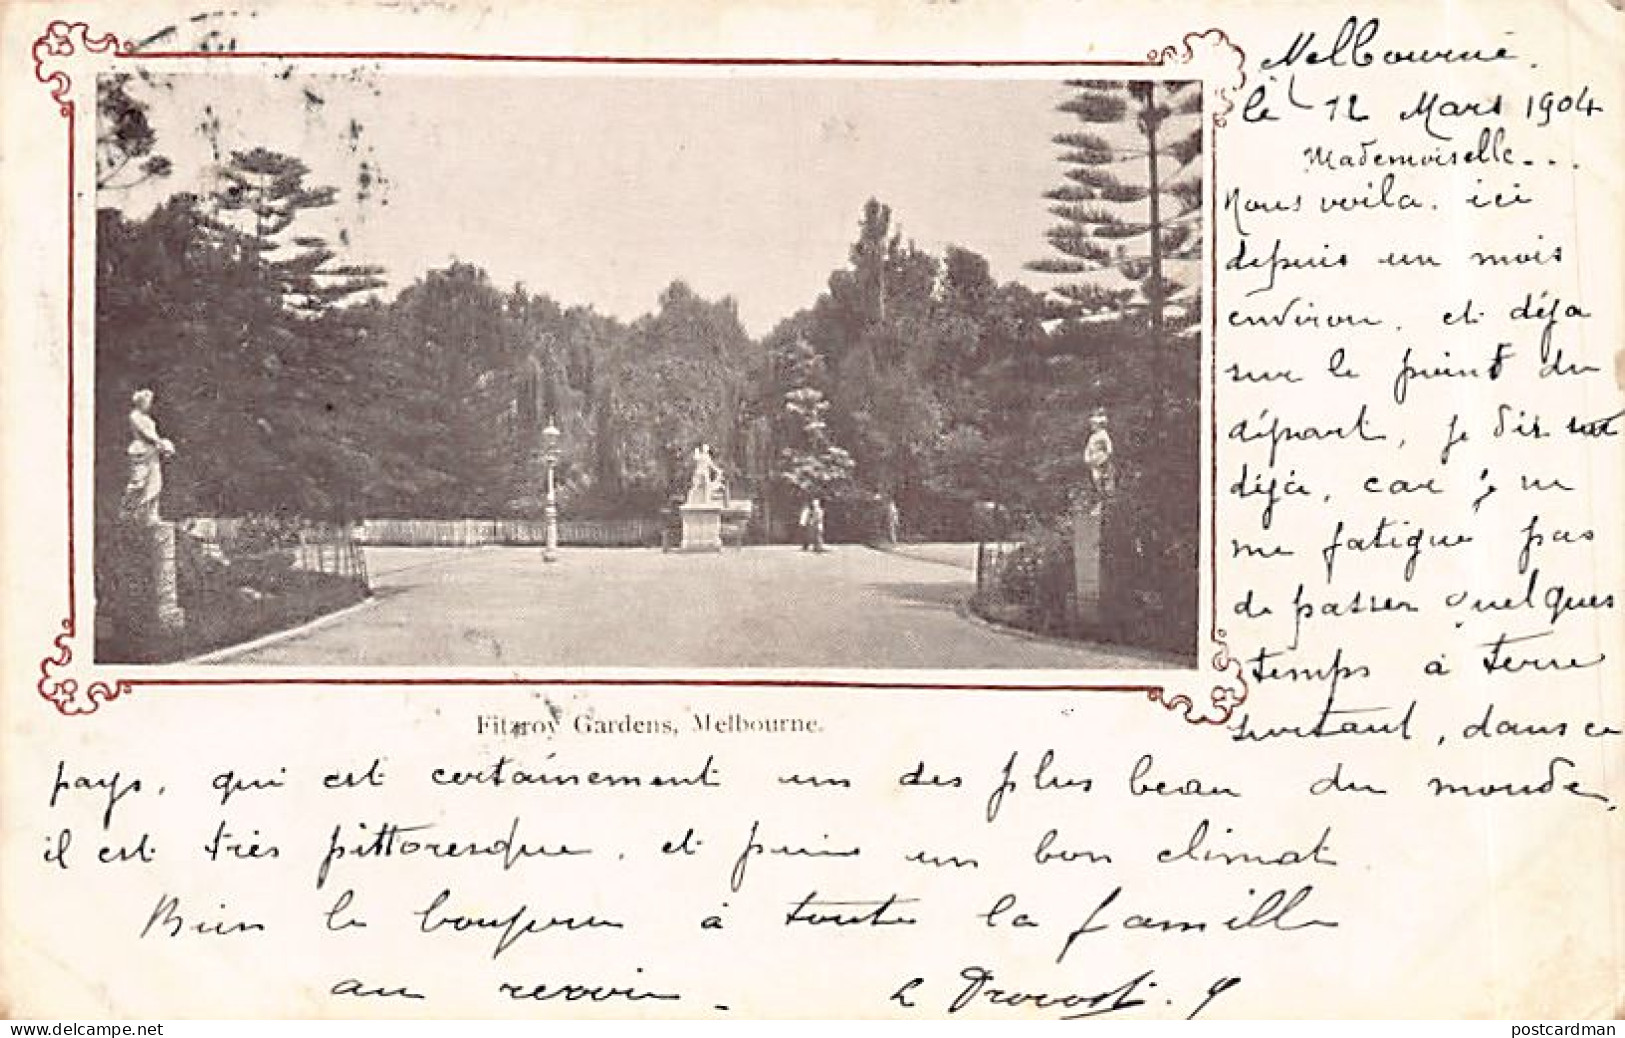 Melbourne.
le 12 Mars 1904
Mademoiselle...
Nous voila. ici
depuis un mois
environ, et déja
sur le point du
départ, je dis
déjà, car je ne
me fatigue pas
de passer quelques
temps à terre
surtout, dans ce
Fitzroy Gardens, Melbourne.
pays, qui est certainement un des plus beau du monde,
il est très pittoresque, et puis un bon climat
Bien le bonjour à toute la famille
au revoir - L Provost.
postcardman
delcampe.net